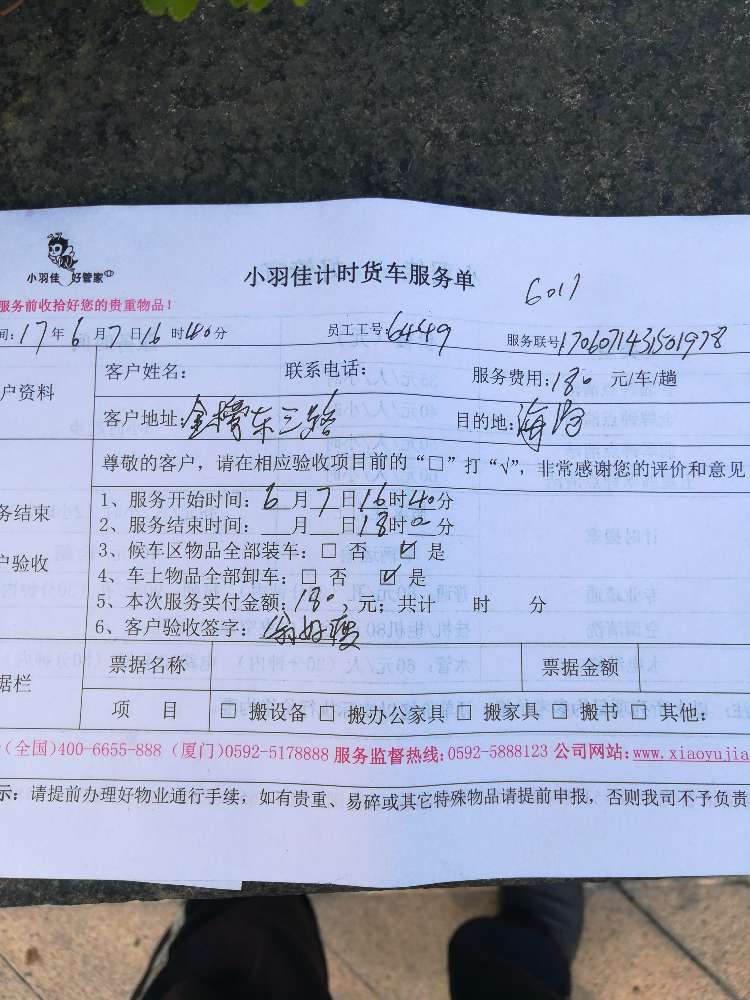 小羽佳 好管家
小羽佳计时货车服务单
6017
服务前收拾好您的贵重物品！
间：17年6月7日16时40分 员工工号：6449 服务联号170607143501978
户资料
客户姓名： 联系电话： 服务费用：180 元/车/趟
客户地址：金 东三路 目的地：海沧
尊敬的客户，请在相应验收项目前的“□”打“√”，非常感谢您的评价和意见
务结束
户验收
1、服务开始时间：6月7日16时40分
2、服务结束时间： 月 日18时0分
3、候车区物品全部装车：□ 否 ☑ 是
4、车上物品全部卸车：□ 否 ☑ 是
5、本次服务实付金额：180，元；共计 时 分
6、客户验收签字：
据栏
票据名称 票据金额
项 目 □ 搬设备 □ 搬办公家具 □ 搬家具 □ 搬书 □ 其他：
：（全国）400-6655-888（厦门）0592-5178888 服务监督热线：0592-5888123 公司网站：www.xiaoyujia
示：请提前办理好物业通行手续，如有贵重、易碎或其它特殊物品请提前申报，否则我司不予负责